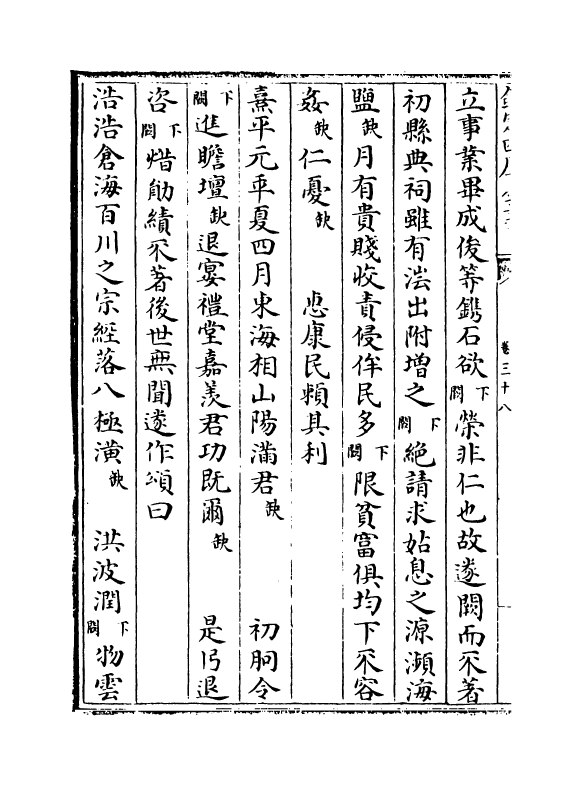 卷三十八
立事業畢成俊等鐫石欲下闕榮非仁也故遂闕而不著
初縣典祠雖有法出附增之下闕絕請求姑息之源瀕海
鹽缺月有貴賤收責侵侔民多下闕限貧富俱均下不容
姦缺仁憂缺　　　悲康民賴其利
熹平元年夏四月東海相山陽滿君缺　　　初朐令
下闕進瞻壇缺退宴禮堂嘉羡君功既爾缺　　是乃退
咨下闕㫺勛績不著後世無聞遂作頌曰
浩浩倉海百川之宗經落八極潢缺　洪波潤下闕物雲